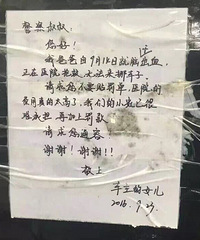 警察叔叔：
您好！
我爸爸自9月18日脑出血，住
正在医院抢救，无法来挪车子。
请求您不要贴罚单，医院的
费用真的太高了，我们的小家已很
难承担，再加上罚款
请求您通容。
谢谢！谢谢！！
敬上
车主的女儿
2016.9.23.